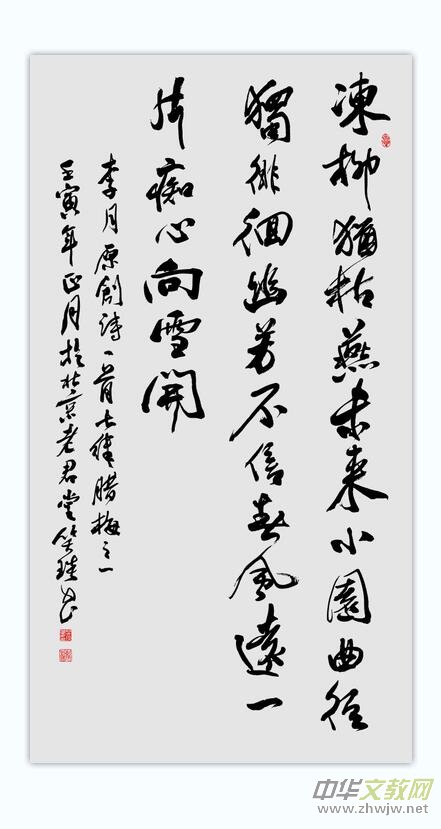 凍柳猶枯燕未來小園曲徑
獨徘徊幽芳不信春風遠一
片痴心向雪開
李月原創詩一首七絕腊梅之一
壬寅年正月於北京老君堂
中华文教网
www.zhwjw.net